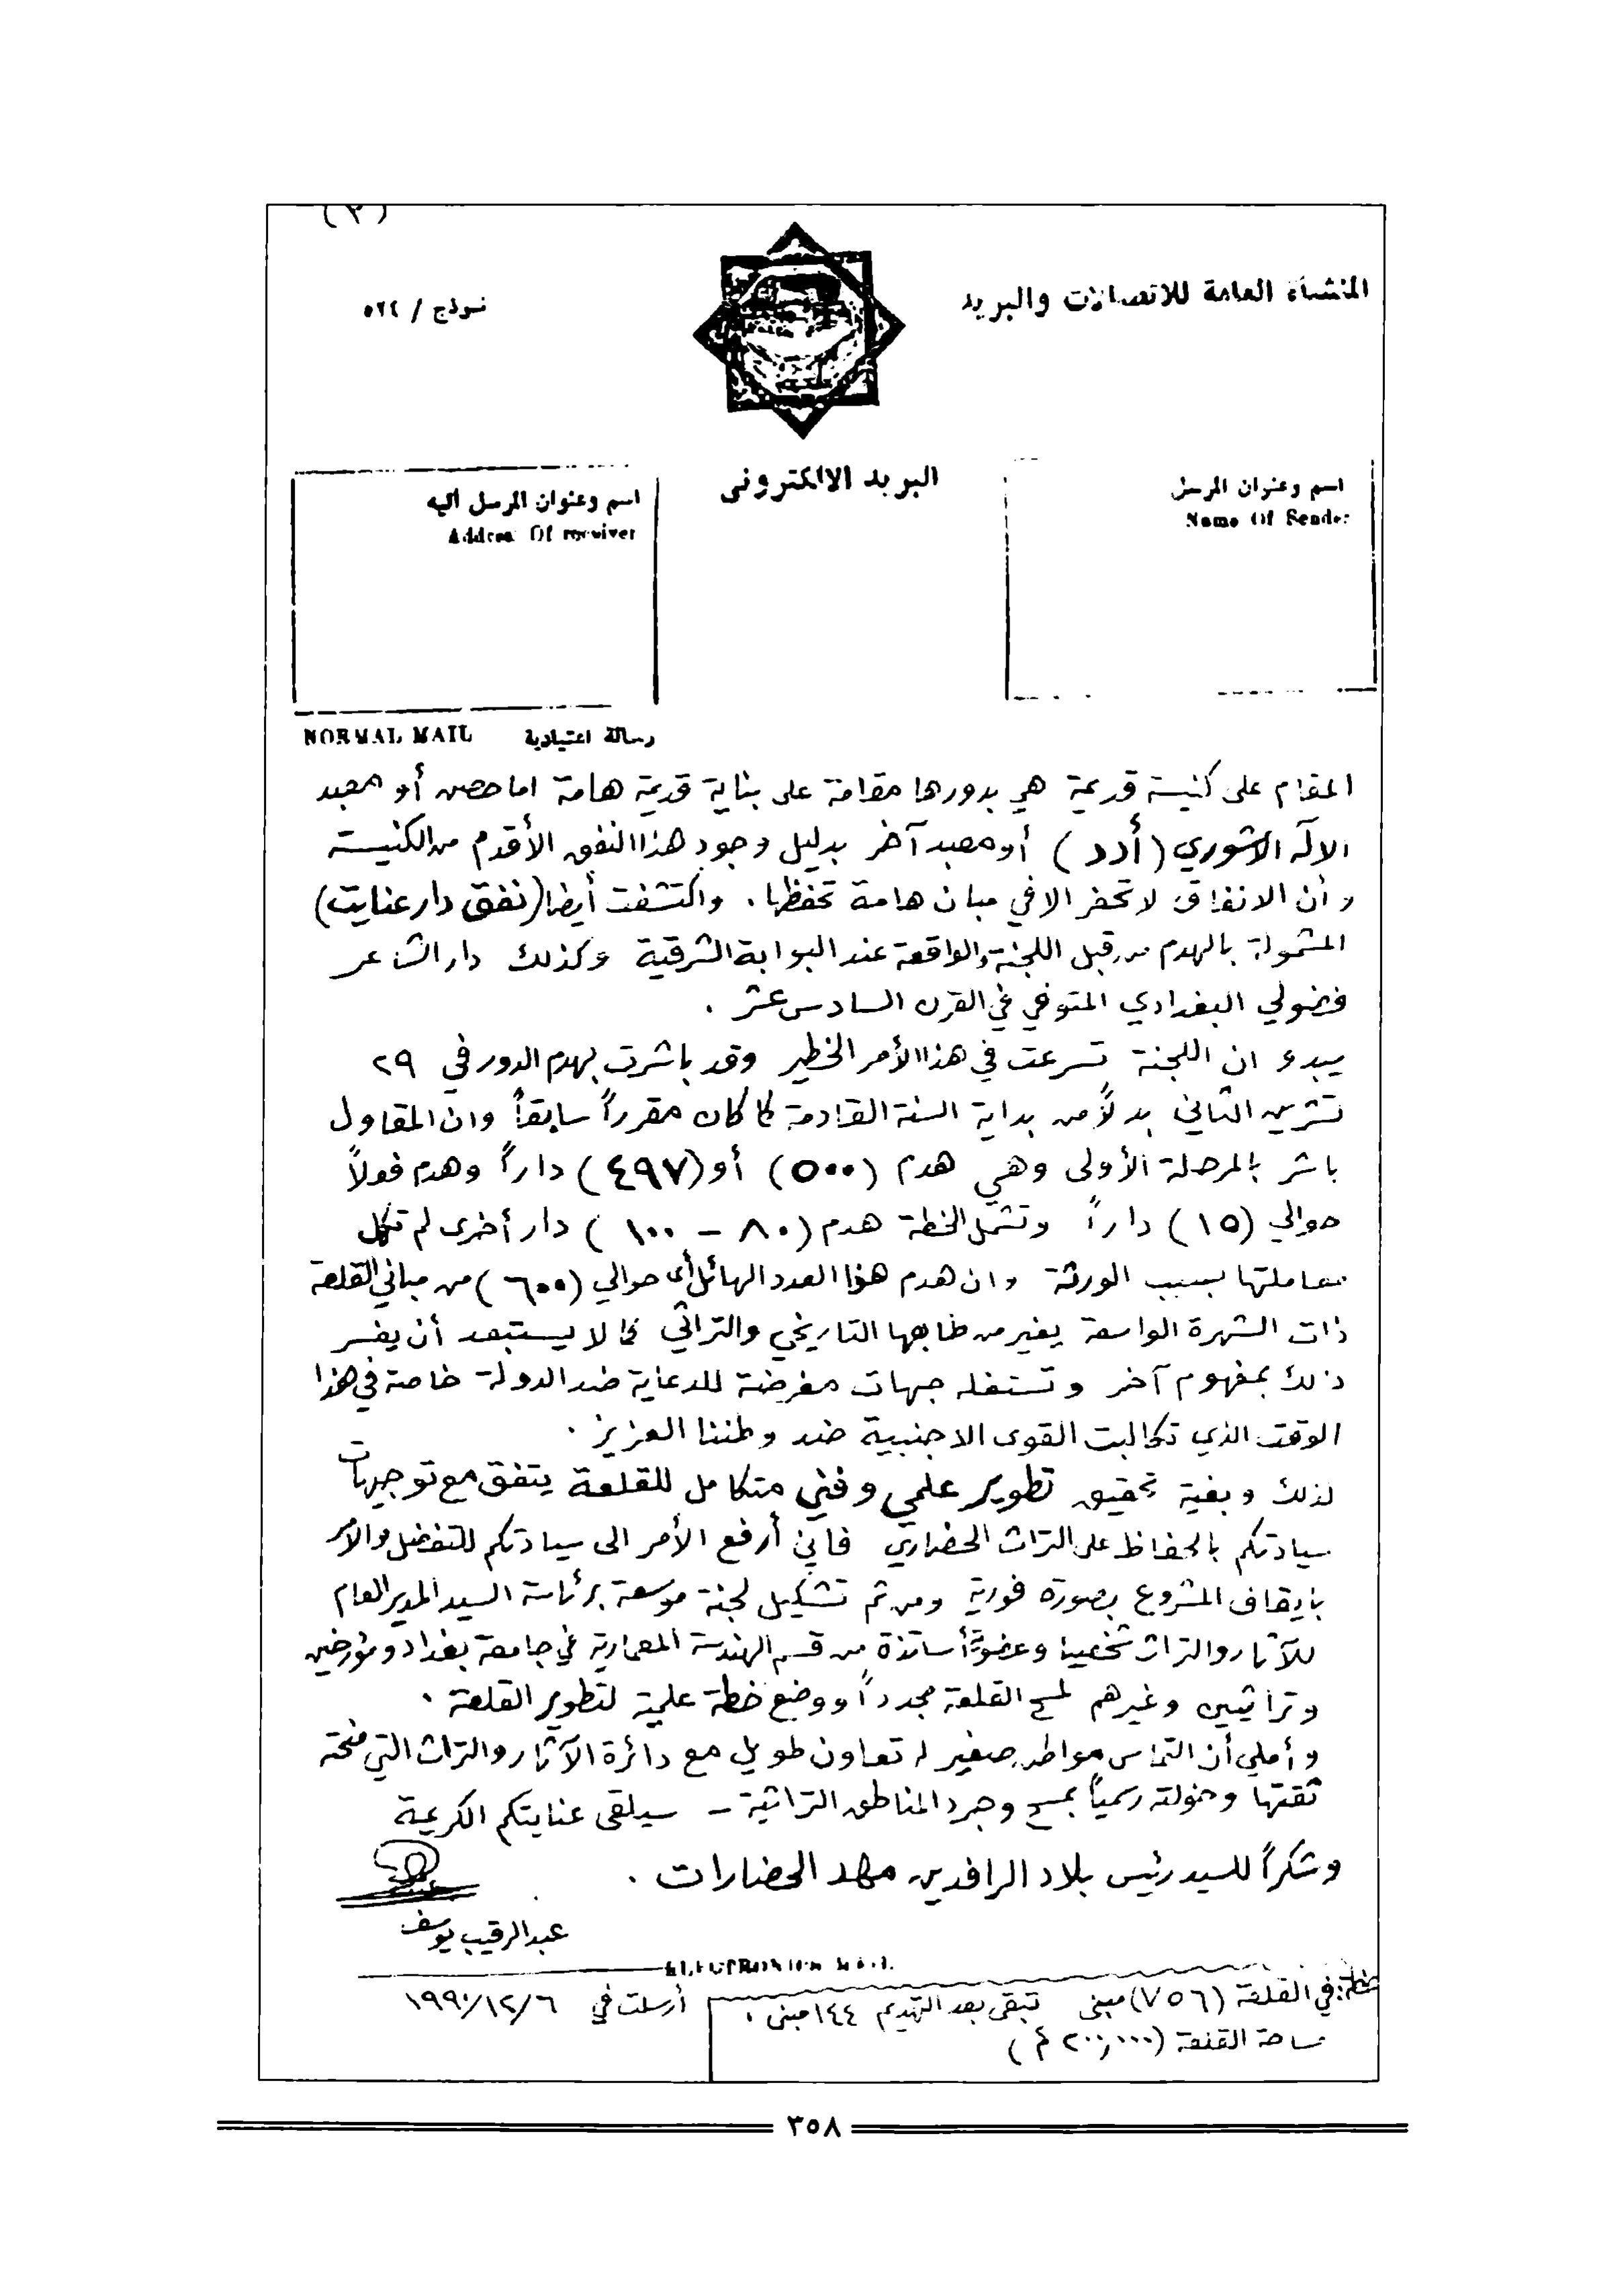 (٣)
المنشأة العامة للاتصالات والبريد
نموذج / ٥٢٤
البريد الالكتروني
اسم وعنوان المرسل
Name Of Sender
اسم وعنوان المرسل اليه
Address Of receiver
رسالة اعتيادية NORMAL MAIL
المقام على كنيسة قديمة هي بدورها مقامة على بناية قديمة هامة اما حصن أو معبد
الاله الاشوري (أدد) أو معبد آخر بدليل وجود هذا النفق الأقدم من الكنيسة
وأن الانفاق لا تحفر الا في مبان هامة تحفظها. واكتشفت أيضا (نفق دار عنايت)
المشمولة بالهدم من قبل اللجنة والواقعة عند البوابة الشرقية وكذلك دار الشاعر
فضولي البغدادي المتوفي في القرن السادس عشر .
يبدو ان اللجنة تسرعت في هذا الأمر الخطير وقد باشرت بهدم الدور في ٢٩
تشرين الثاني بدلاً من بداية السنة القادمة كما كان مقرراً سابقاً وان المقاول
باشر بالمرحلة الأولى وهي هدم (٥٠٠) أو (٤٩٧) داراً وهدم فعلاً
حوالي (١٥) داراً وتشمل الخطة هدم (٨٠ - ١٠٠) دار أخرى لم تكمل
معاملتها بسبب الورثة وان هدم هذا العدد الهائل أي حوالي (٦٠٠) من مباني القلعة
ذات الشهرة الواسعة يغير من طابعها التاريخي والتراثي كما لا يستبعد أن يفسر
ذلك بمفهوم آخر وتستغله جهات مغرضة للدعاية ضد الدولة خاصة في هذا
الوقت الذي تكالبت القوى الاجنبية ضد وطننا العزيز .
لذلك وبغية تحقيق تطوير علمي وفني متكامل للقلعة يتفق مع توجيهات
سيادتكم بالحفاظ على التراث الحضاري فاني أرفع الأمر الى سيادتكم للتفضل والأمر
بايقاف المشروع بصورة فورية ومن ثم تشكيل لجنة موسعة برئاسة السيد المدير العام
للآثار والتراث شخصيا وعضوية أساتذة من قسم الهندسة المعمارية في جامعة بغداد ومؤرخين
وتراثيين وغيرهم لمسح القلعة مجدداً ووضع خطة علمية لتطوير القلعة .
وأملي أن التماس مواطن صغير له تعاون طويل مع دائرة الآثار والتراث التي منحته
ثقتها وخولته رسمياً بمسح وجرد المناطق التراثية - سيلقى عنايتكم الكريمة
وشكراً للسيد رئيس بلاد الرافدين مهد الحضارات .
عبدالرقيب يوسف
ELECTRONICS MAIL
في القلعة (٧٥٦) مبنى تبقى بعد التهديم ١٤٤ مبنى .
أرسلت في ١٩٩٠/١٢/٦
مساحة القلعة (٢٠٠,٠٠٠ م٢)
٣٥٨